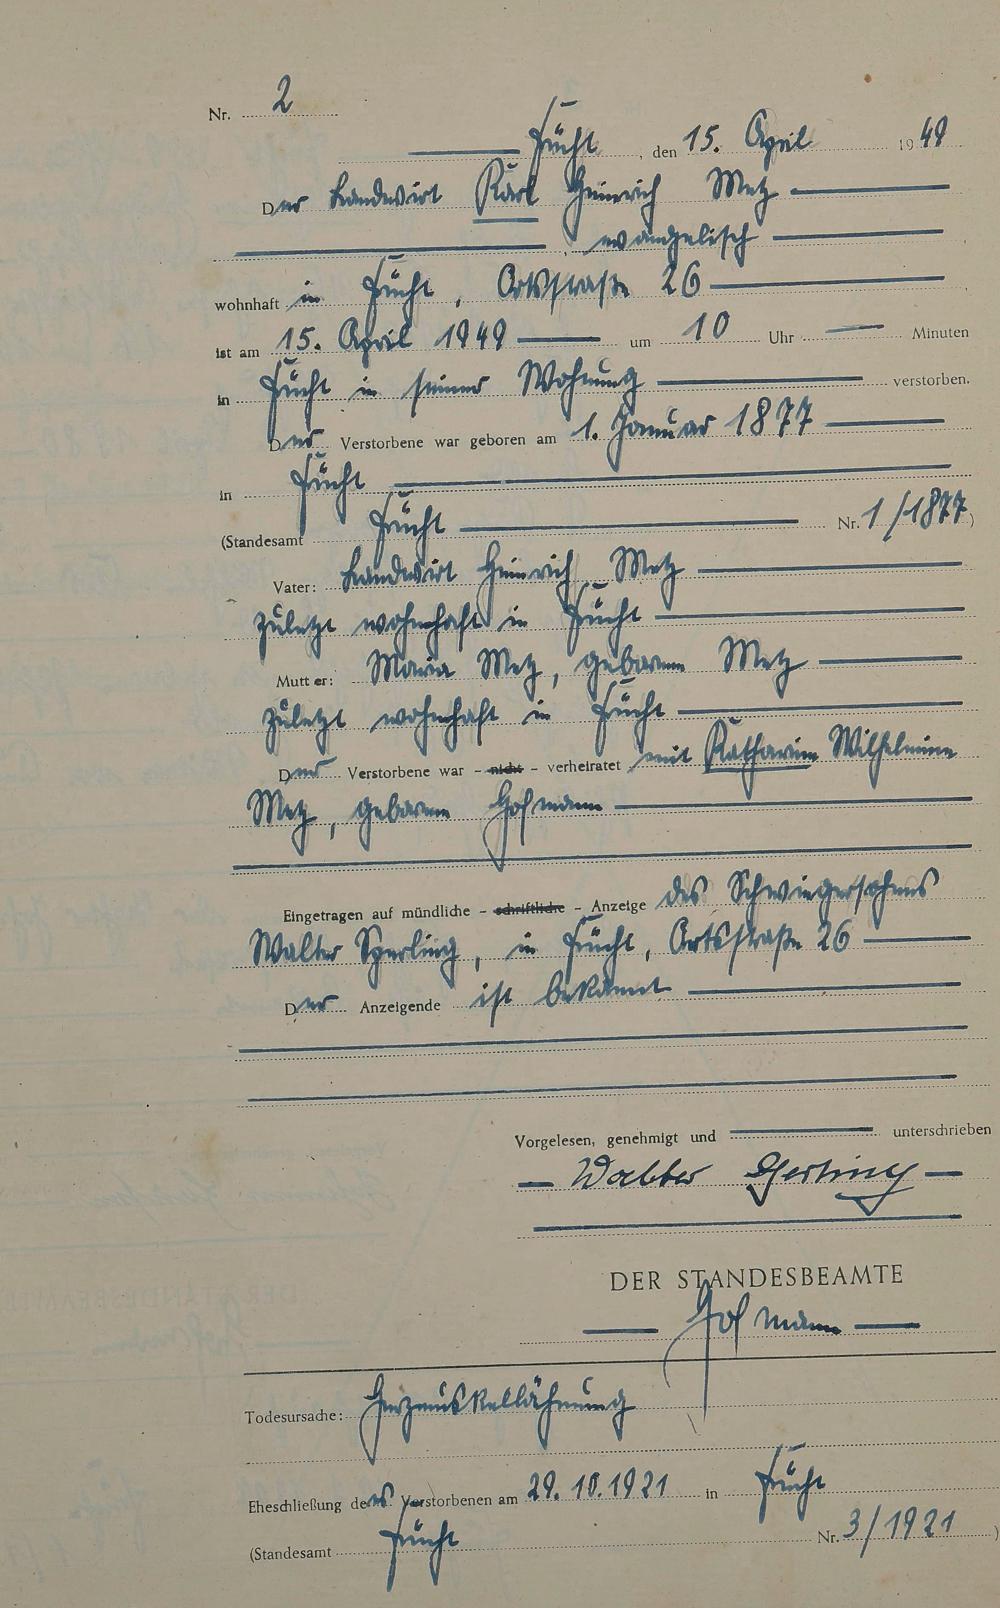 Nr. 2
Frücht, den 15. April 1949
Der Landwirt Karl Heinrich Metz
evangelisch
wohnhaft in Frücht, Ortsstraße 26
ist am 15. April 1949 um 10 Uhr Minuten
in Frücht in seiner Wohnung verstorben.
Der Verstorbene war geboren am 1. Januar 1877
in Frücht
(Standesamt Frücht Nr. 1/1877)
Vater: Landwirt Heinrich Metz
zuletzt wohnhaft in Frücht
Mutter: Maria Metz, geborene Metz
zuletzt wohnhaft in Frücht
Der Verstorbene war - nicht - verheiratet mit Katharine Wilhelmine
Metz, geborene Hofmann
Eingetragen auf mündliche - schriftliche - Anzeige des Schwiegersohnes
Walter Sperling, in Frücht, Ortsstraße 26
Der Anzeigende ist bekannt
Vorgelesen, genehmigt und unterschrieben
Walter Sperling
DER STANDESBEAMTE
Hofmann
Todesursache: Herzmuskellähmung
Eheschließung des Verstorbenen am 29.10.1921 in Frücht
(Standesamt Frücht Nr. 3/1921)